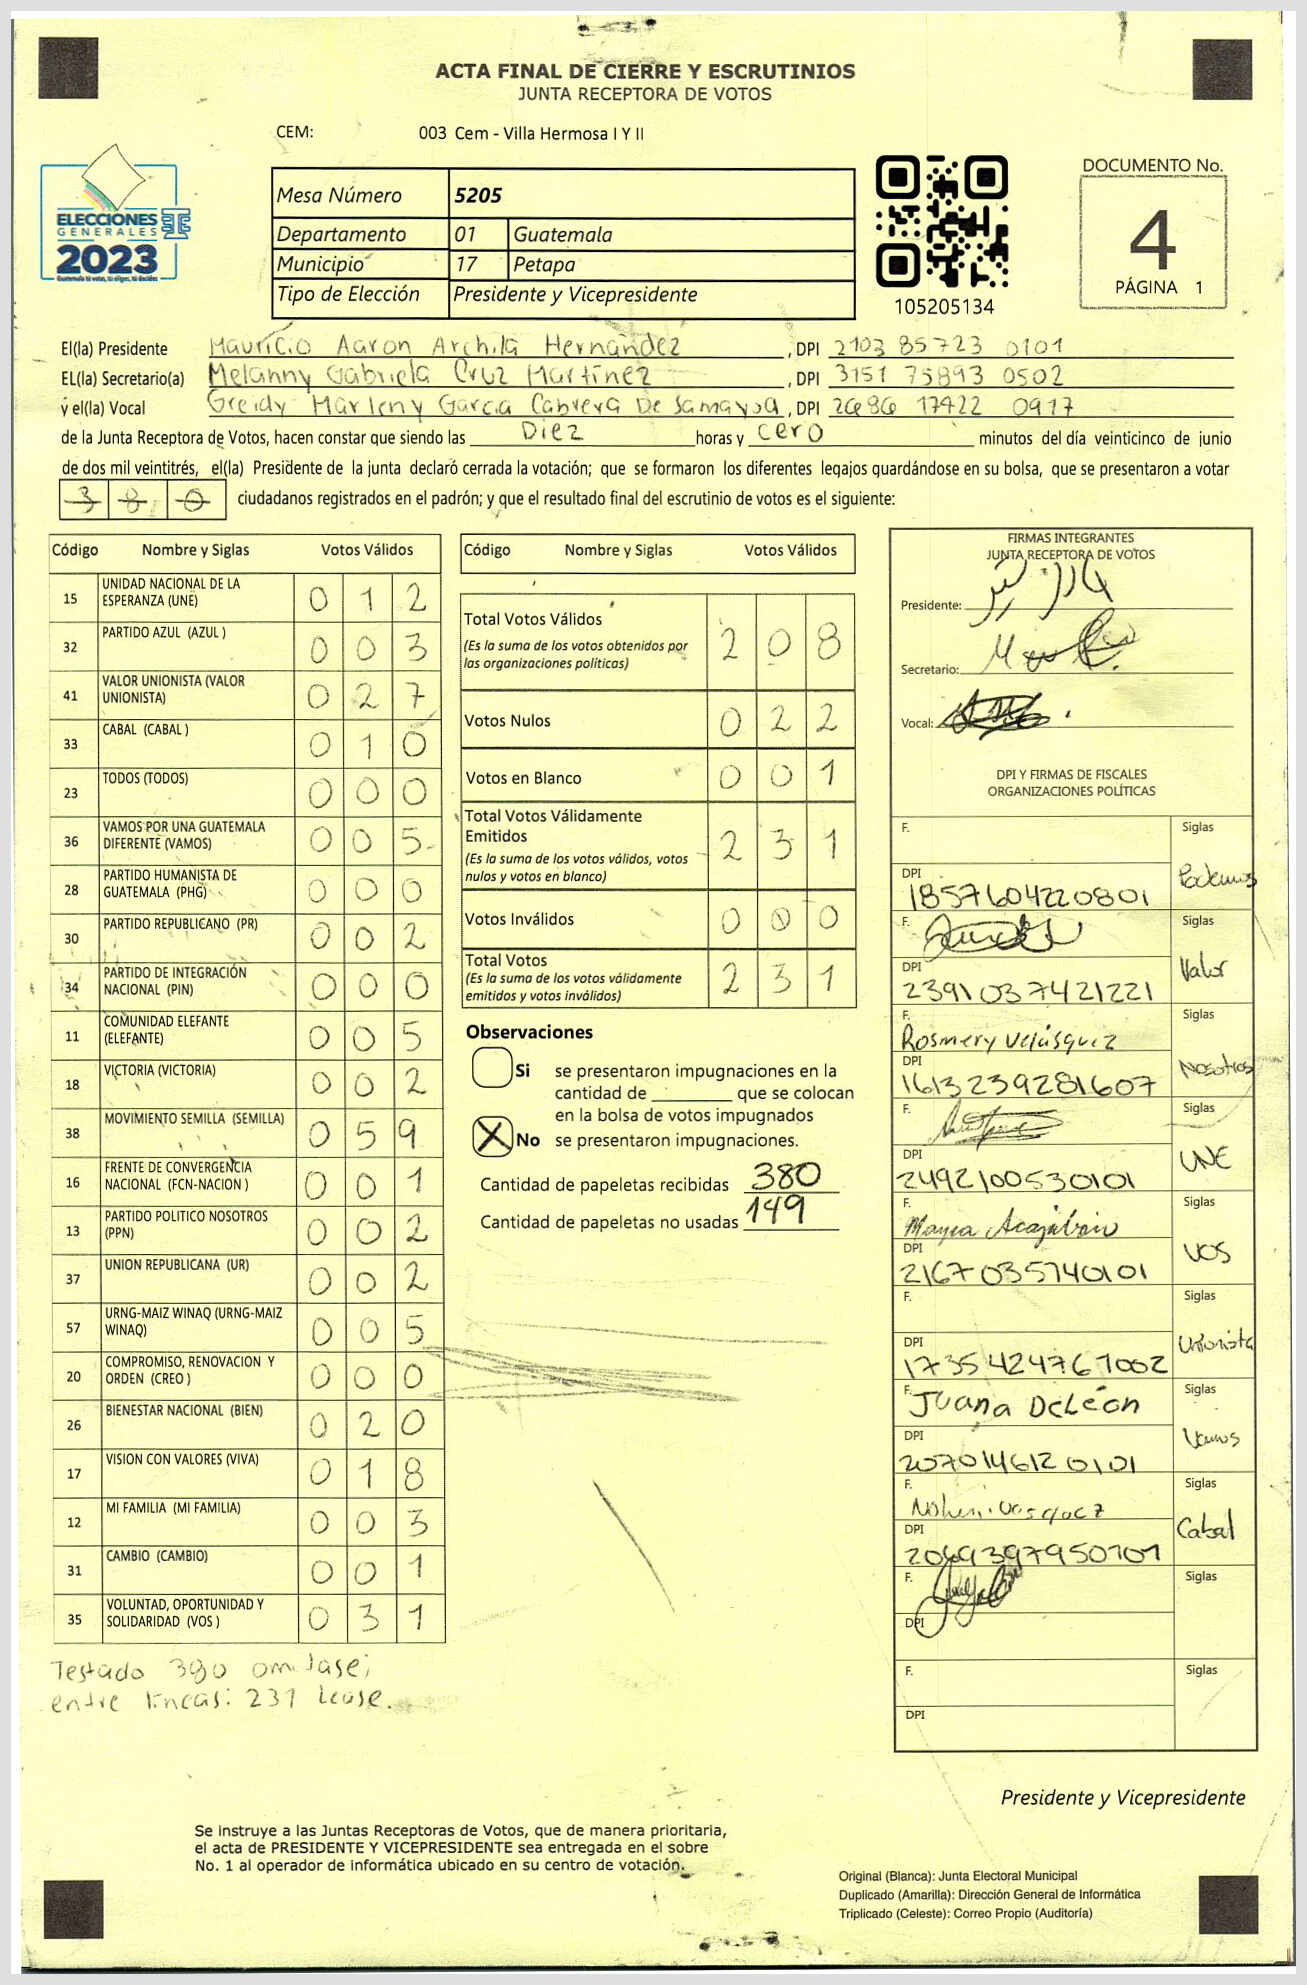 ACTA FINAL DE CIERRE Y ESCRUTINIOS
JUNTA RECEPTORA DE VOTOS
CEM: 003 Cem - Villa Hermosa I Y II
ELECCIONES
GENERALES
2023
Mesa Número 5205
Departamento 01 Guatemala
Municipio 17 Petapa
Tipo de Elección Presidente y Vicepresidente
105205134
DOCUMENTO No.
4
PÁGINA 1
El(la) Presidente Mauricio Aaron Archila Hernández, DPI 2103 85723 0101
EL(la) Secretario(a) Melanny Gabriela Cruz Martínez, DPI 3151 75893 0502
y el(la) Vocal Greidy Marleny Garcia Cabrera De Samayoa, DPI 2686 17422 0917
de la Junta Receptora de Votos, hacen constar que siendo las Diez horas y cero minutos del día veinticinco de junio
de dos mil veintitrés, el(la) Presidente de la junta declaró cerrada la votación; que se formaron los diferentes legajos guardándose en su bolsa, que se presentaron a votar
3 8 0 ciudadanos registrados en el padrón; y que el resultado final del escrutinio de votos es el siguiente:
Código Nombre y Siglas Votos Válidos
15 UNIDAD NACIONAL DE LA ESPERANZA (UNE) 0 1 2
32 PARTIDO AZUL (AZUL ) 0 0 3
41 VALOR UNIONISTA (VALOR UNIONISTA) 0 2 7
33 CABAL (CABAL ) 0 1 0
23 TODOS (TODOS) 0 0 0
36 VAMOS POR UNA GUATEMALA DIFERENTE (VAMOS) 0 0 5
28 PARTIDO HUMANISTA DE GUATEMALA (PHG) 0 0 0
30 PARTIDO REPUBLICANO (PR) 0 0 2
34 PARTIDO DE INTEGRACIÓN NACIONAL (PIN) 0 0 0
11 COMUNIDAD ELEFANTE (ELEFANTE) 0 0 5
18 VICTORIA (VICTORIA) 0 0 2
38 MOVIMIENTO SEMILLA (SEMILLA) 0 5 9
16 FRENTE DE CONVERGENCIA NACIONAL (FCN-NACION ) 0 0 1
13 PARTIDO POLITICO NOSOTROS (PPN) 0 0 2
37 UNION REPUBLICANA (UR) 0 0 2
57 URNG-MAIZ WINAQ (URNG-MAIZ WINAQ) 0 0 5
20 COMPROMISO, RENOVACION Y ORDEN (CREO ) 0 0 0
26 BIENESTAR NACIONAL (BIEN) 0 2 0
17 VISION CON VALORES (VIVA) 0 1 8
12 MI FAMILIA (MI FAMILIA) 0 0 3
31 CAMBIO (CAMBIO) 0 0 1
35 VOLUNTAD, OPORTUNIDAD Y SOLIDARIDAD (VOS ) 0 3 1
Testado 380 omitase;
entre lineas: 231 Lease.
Código Nombre y Siglas Votos Válidos
Total Votos Válidos 2 0 8
(Es la suma de los votos obtenidos por
las organizaciones políticas)
Votos Nulos 0 2 2
Votos en Blanco 0 0 1
Total Votos Válidamente
Emitidos 2 3 1
(Es la suma de los votos válidos, votos
nulos y votos en blanco)
Votos Inválidos 0 0 0
Total Votos 2 3 1
(Es la suma de los votos válidamente
emitidos y votos inválidos)
Observaciones
Si se presentaron impugnaciones en la
cantidad de ________ que se colocan
en la bolsa de votos impugnados
X No se presentaron impugnaciones.
Cantidad de papeletas recibidas 380
Cantidad de papeletas no usadas 149
FIRMAS INTEGRANTES
JUNTA RECEPTORA DE VOTOS
Presidente:
Secretario:
Vocal:
DPI Y FIRMAS DE FISCALES
ORGANIZACIONES POLÍTICAS
F. Siglas Podemos
DPI 1857604220801
F. Siglas Valor
DPI 2391037421221
F. Rosmery Velásquez Siglas Nosotros
DPI 1613239281607
F. Siglas UNE
DPI 2492100530101
F. Siglas VOS
DPI 2167035740101
F. Siglas Unionista
DPI 1735424761002
F. Juana DeLeón Siglas Vamos
DPI 2070146120101
F. Siglas Cabal
DPI 2069397950101
F. Siglas
DPI
F. Siglas
DPI
Presidente y Vicepresidente
Se instruye a las Juntas Receptoras de Votos, que de manera prioritaria,
el acta de PRESIDENTE Y VICEPRESIDENTE sea entregada en el sobre
No. 1 al operador de informática ubicado en su centro de votación.
Original (Blanca): Junta Electoral Municipal
Duplicado (Amarilla): Dirección General de Informática
Triplicado (Celeste): Correo Propio (Auditoría)